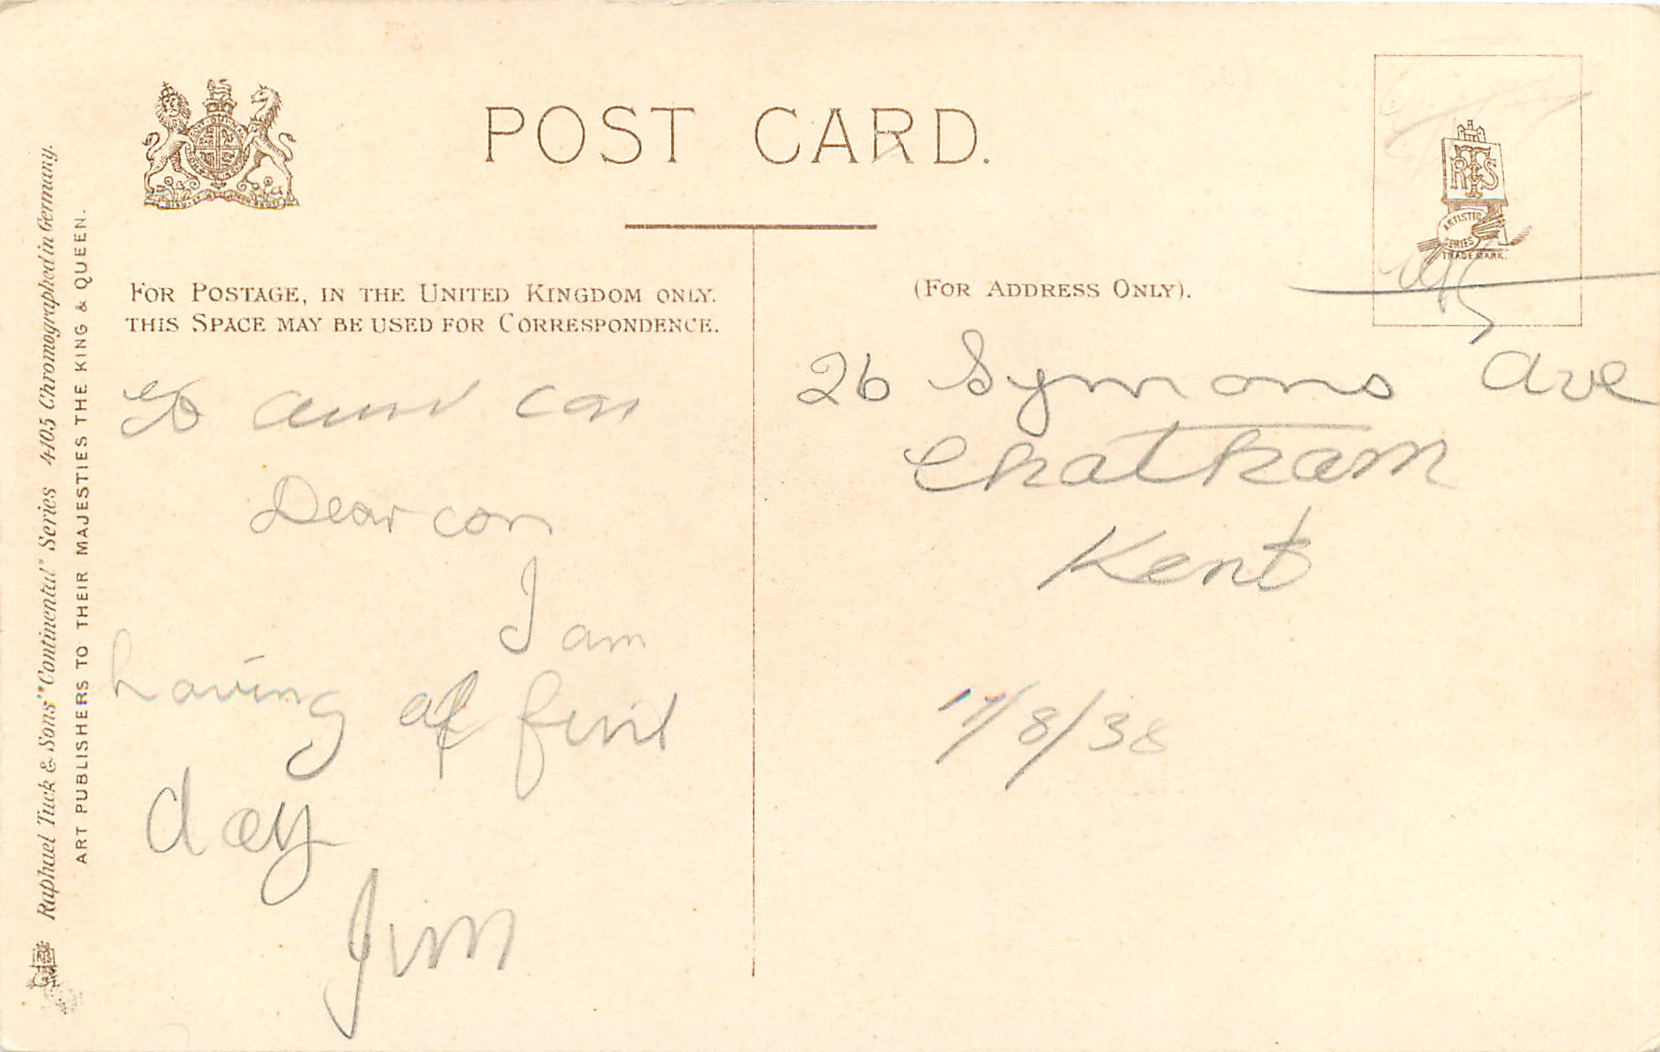 POST CARD.
FOR POSTAGE, IN THE UNITED KINGDOM ONLY.
THIS SPACE MAY BE USED FOR CORRESPONDENCE.
(FOR ADDRESS ONLY).
RTS
ARTISTIC
SERIES
TRADE MARK.
Raphael Tuck & Sons' "Continental" Series 4105 Chromographed in Germany.
ART PUBLISHERS TO THEIR MAJESTIES THE KING & QUEEN.
to aunt con
Dear con
I am
having a
day
Jim
26 Symons Ave
Chatham
Kent
17/8/38